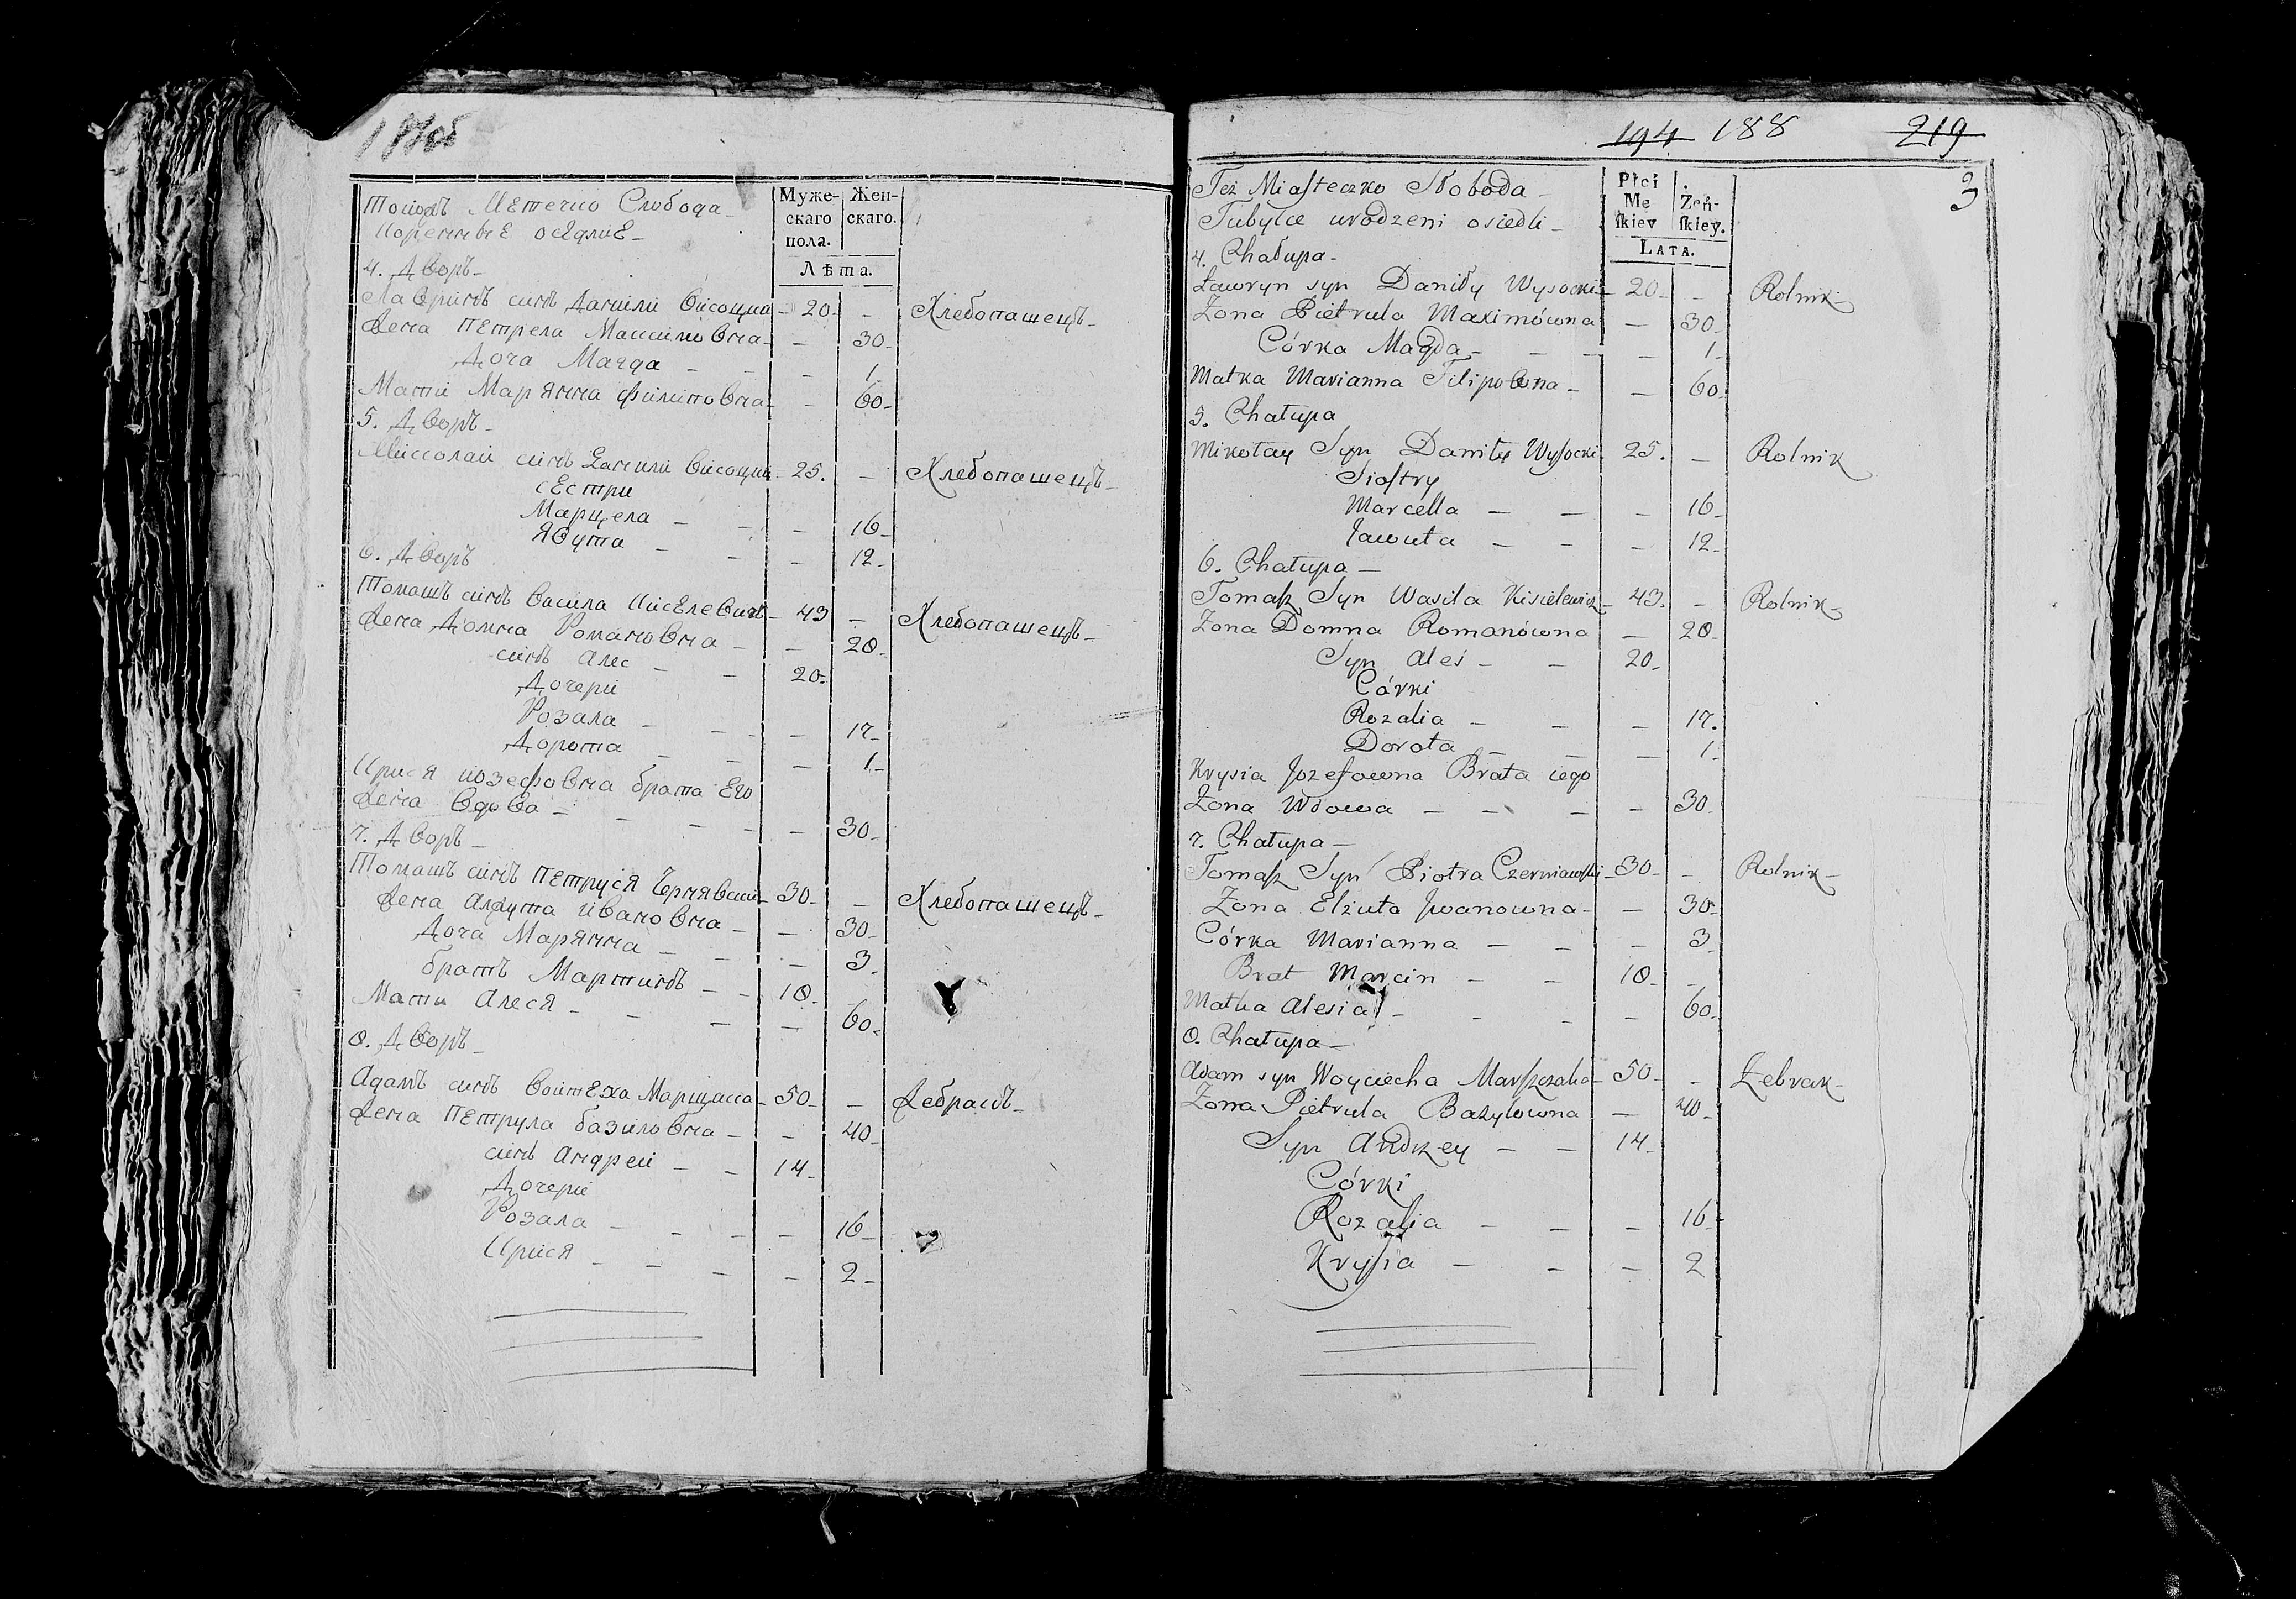 Муже-
скаго
пола.
Жен-
скаго.
Лѣта.
Тоижъ Мѣстечко Слобода
Кореннѣе осѣдлие
4. Дворъ
Лавринъ синъ Данили Висоцки 20 Хлебопашецъ
Жена Петрела Максимовна 30
Доча Магда 1
Мати Марянна Филиповна 60
5. Дворъ
Миколаи синъ Данили Висоцки 25. Хлебопашецъ
сестри
Марцела 16
Явута 12
6. Дворъ
Томашъ синъ Васила Киселевичъ 43 Хлебопашецъ
Жена Домна Романовна 28
синъ Алес 20
Дочери
Розала 17
Дорота 1
Крися Иозефовна брата Его
Жена Вдова 30
7. Дворъ
Томашъ синъ Петруся Чернявски 30 Хлебопашецъ
Жена Алжута Ивановна 30
Доча Марянна 3
братъ Мартинъ 18
Мати Алеся 60
8. Дворъ
Адамъ синъ Воитеха Марщалка 50 Жебракъ
Жена Петрула базиловна 40
синъ Андреи 14
Дочери
Розала 16
Крися 2
194 188 219
3
Płci
Mę
ſkiey
Żeń-
ſkiey.
LATA.
Też Miaſteczko Słoboda
Tubylce urodzeni osiedli
4. Chałupa
Ławryn syn Daniły Wysocki 20 Rolnik
Zona Pietrula Maximówna 30
Córka Magda 1
Matka Marianna Filipowna 60
5. Chałupa
Mikołay Syn Daniły Wyſocki 25. Rolnik
Sioſtry
Marcella 16
Jawuta 12
6. Chałupa
Tomaſz Syn Wasila Kisielewicz 43. Rolnik
Zona Domna Romanówna 28
Syn Aleś 20
Córki
Rozalia 17.
Dorota 1
Krysia Jozefowna Brata iego
Zona Wdowa 30
7. Chałupa
Tomaſz Syn Piotra Czerniawſki 30 Rolnik
Zona Elżuta Jwanowna 30
Córka Marianna 3
Brat Marcin 18
Matka Alesia 60
8. Chałupa
Adam syn Woyciecha Marſzczałka 50 Żebrak
Zona Pietrula Bazylowna 40
Syn Andrzey 14
Córki
Rozalia 16
Kryſia 2